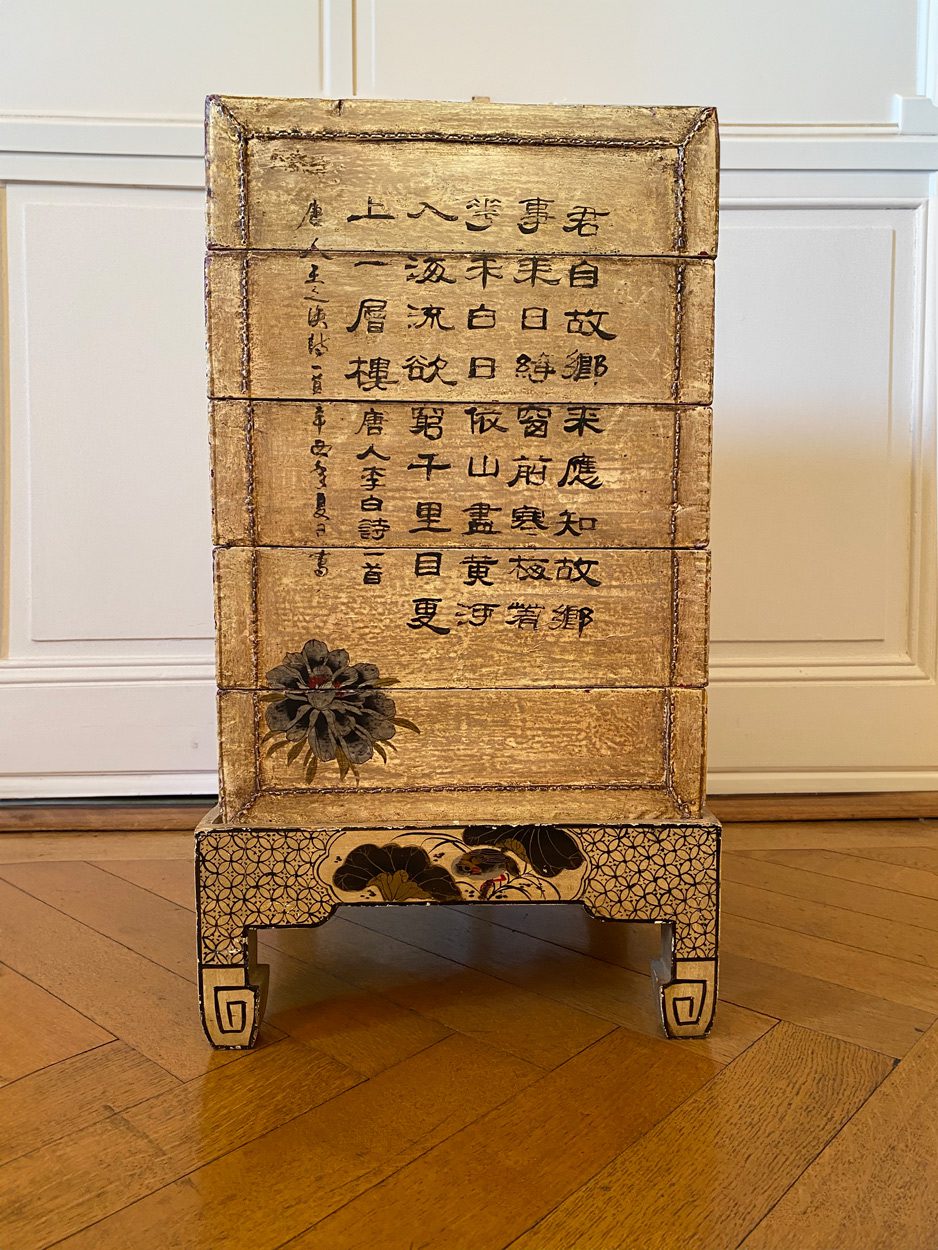 君自故鄉来應知故鄉
事来日綺窗前寒梅着
花未白日依山盡黃河
入海流欲窮千里目更
上一層樓唐人李白詩一首
唐人王之渙詩一首辛酉年夏日書